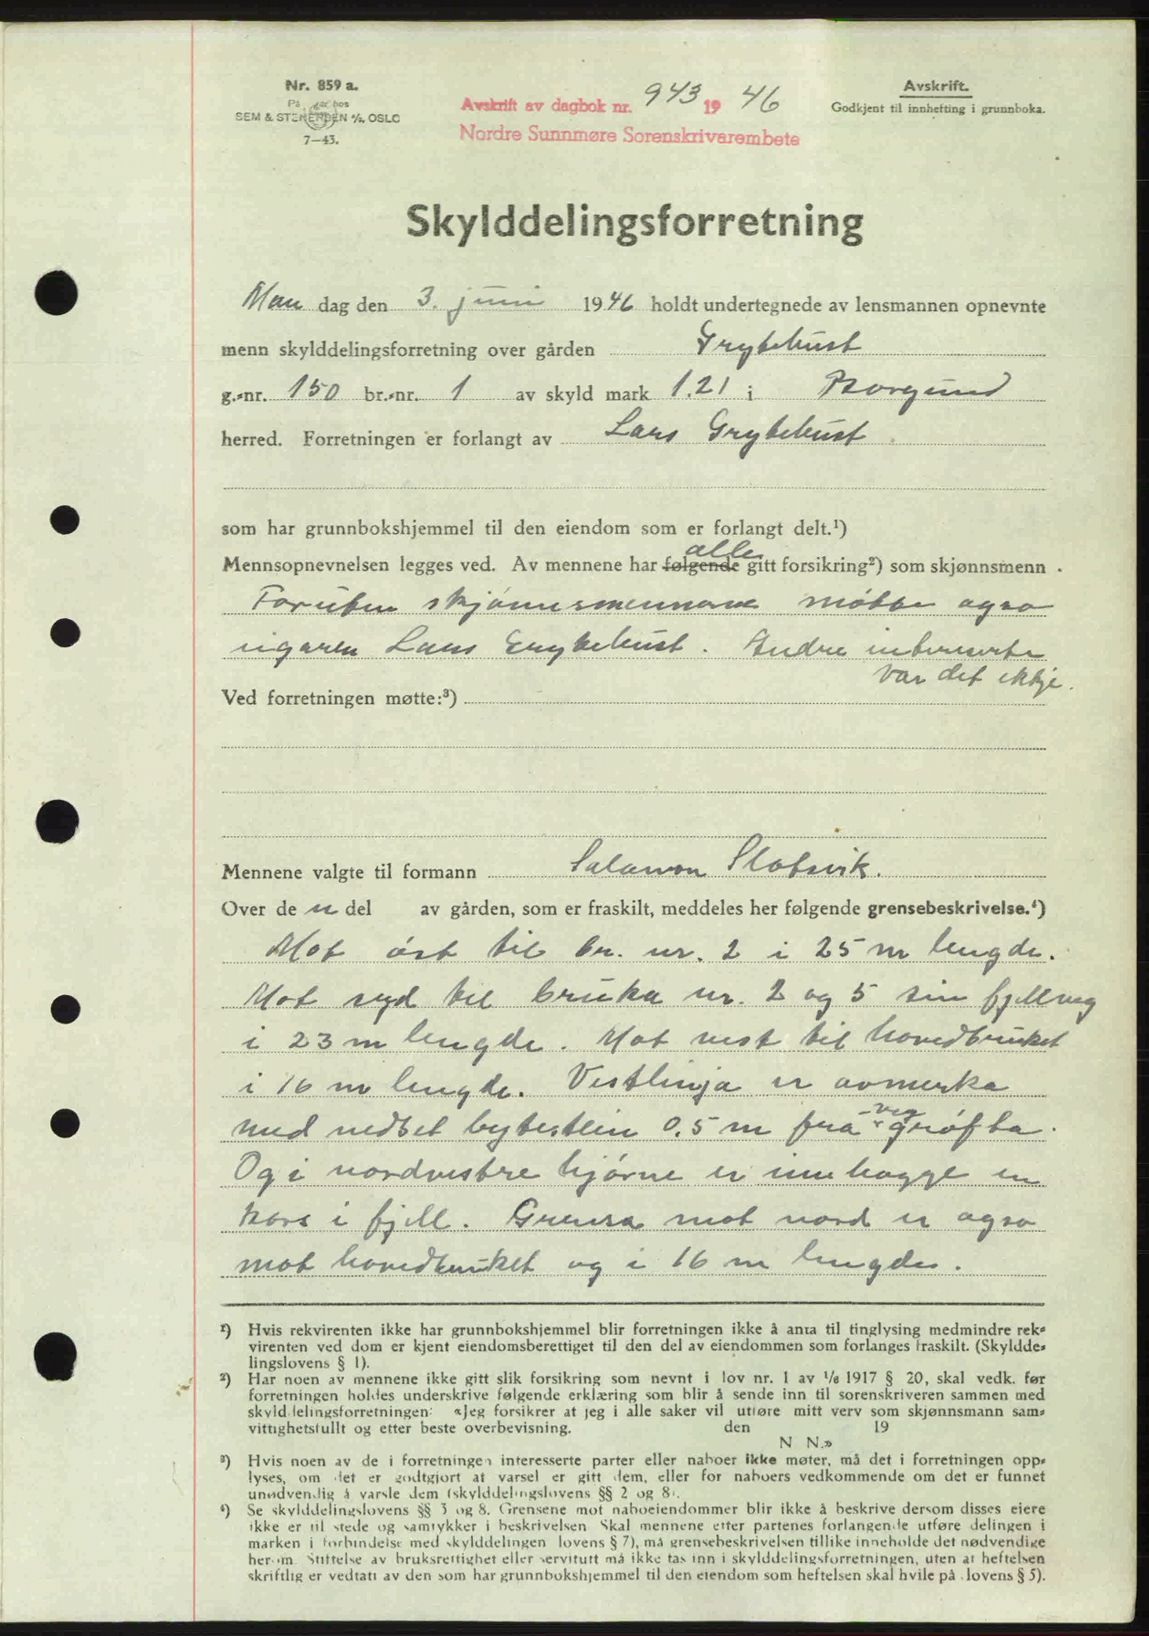 Nr. 859 a.
På lager hos
SEM & STENERSEN A/S, OSLO
7—43.
Avskrift av dagbok nr. 943 19 46
Nordre Sunnmøre Sorenskrivarembete
Avskrift.
Godkjent til innhefting i grunnboka.
Skylddelingsforretning
Man dag den 3. juni 1946 holdt undertegnede av lensmannen opnevnte
menn skylddelingsforretning over gården Grytehust
g.-nr. 150 br.-nr. 1 av skyld mark 1.21 i Borgund
herred. Forretningen er forlangt av Lars Grytehust.
som har grunnbokshjemmel til den eiendom som er forlangt delt.¹)
alle
Mennsopnevnelsen legges ved. Av mennene har følgende gitt forsikring²) som skjønnsmenn.
Foruten skjønnsmennene møtte også
eigaren Lars Grytehust. Andre interesserte
var det ikkje.
Ved forretningen møtte:³)
Mennene valgte til formann Salamon Slotsvik.
Over de n del av gården, som er fraskilt, meddeles her følgende grensebeskrivelse.⁴)
Mot øst til br. nr. 2 i 25 m lengde.
Mot syd til bruka nr. 2 og 5 sin fjellveg
i 23 m lengde. Mot vest til hovedbruket
i 16 m lengde. Vestlinja er avmerka
med nedset bytestein 0,5 m fra veg-
grøfta.
Og i nordvestre hjørne er innhogge en
kors i fjell. Grensa mot nord er også
mot hovedbruket og i 16 m lengde.
¹) Hvis rekvirenten ikke har grunnbokshjemmel blir forretningen ikke å anta til tinglysing medmindre rek-
virenten ved dom er kjent eiendomsberettiget til den del av eiendommen som forlanges fraskilt. (Skyldde-
lingslovens § 1).
²) Har noen av mennene ikke gitt slik forsikring som nevnt i lov nr. 1 av 1/6 1917 § 20, skal vedk. før
forretningen holdes underskrive følgende erklæring som blir å sende inn til sorenskriveren sammen med
skylddelingsforretningen: «Jeg forsikrer at jeg i alle saker vil utføre mitt verv som skjønnsmann sam-
vittighetsfullt og etter beste overbevisning. den 19
N N.»
³) Hvis noen av de i forretningen interesserte parter eller naboer ikke møter, må det i forretningen opp-
lyses, om det er godtgjort at varsel er gitt dem, eller for naboers vedkommende om det er funnet
unødvendig å varsle dem (skylddelingslovens §§ 2 og 8).
⁴) Se skylddelingslovens §§ 3 og 8. Grensene mot naboeiendommer blir ikke å beskrive dersom disses eiere
ikke er til stede og samtykker i beskrivelsen Skal mennene etter partenes forlangende utføre delingen i
marken i forbindelse med skylddelingen lovens § 7), må grensebeskrivelsen tillike inneholde det nødvendige
herom. Stiftelse av bruksrettighet eller servitutt må ikke tas inn i skylddelingsforretningen, uten at heftelsen
skriftlig er vedtatt av den som har grunnbokshjemmel til den eiendom som heftelsen skal hvile på (lovens § 5).